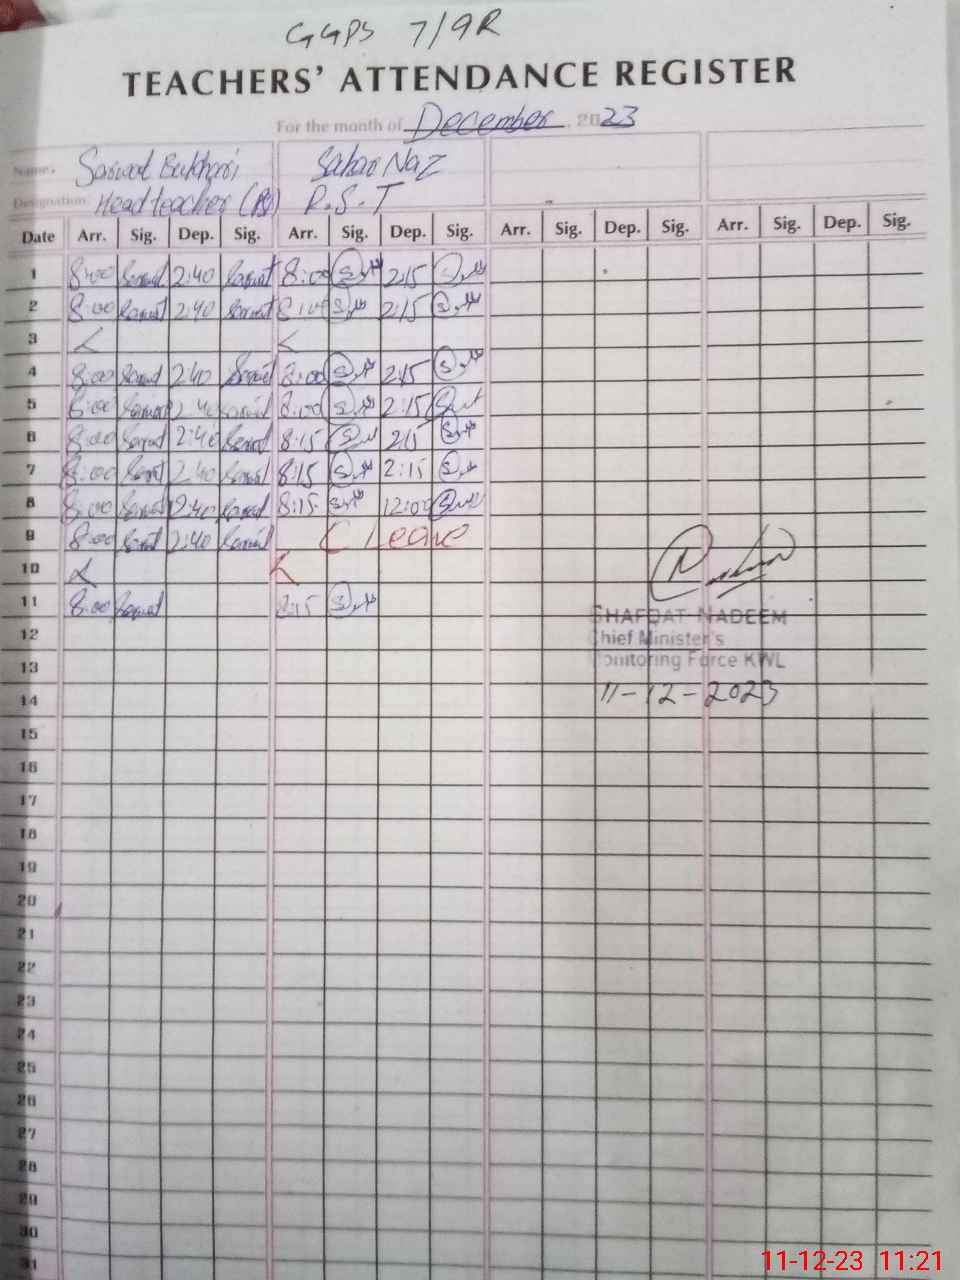 GGPS 7/9R
TEACHERS' ATTENDANCE REGISTER
For the month of December, 2023
Name. Sarwat Bukhari Sahar Naz
Designation Head teacher R.S.T
Date Arr. Sig. Dep. Sig. Arr. Sig. Dep. Sig. Arr. Sig. Dep. Sig. Arr. Sig. Dep. Sig.
1 8:00 Sarwat 2:40 Sarwat 8:00 2:15
2 8:00 Sarwat 2:40 Sarwat 8:00 2:15
3
4 8:00 Sarwat 2:40 Sarwat 8:00 2:15
5 8:00 Sarwat 2:40 Sarwat 8:00 2:15
6 8:00 Sarwat 2:40 Sarwat 8:15 2:15
7 8:00 Sarwat 2:40 Sarwat 8:15 2:15
8 8:00 Sarwat 2:40 Sarwat 8:15 12:00
9 8:00 Sarwat 2:40 Sarwat C Leave
10
11 8:00 Sarwat 8:15
SHAFQAT NADEEM
12
Chief Minister's
13
Monitoring Force KWL
14
11-12-2023
15
16
17
18
19
20
21
22
23
24
25
26
27
28
29
30
31
11-12-23 11:21